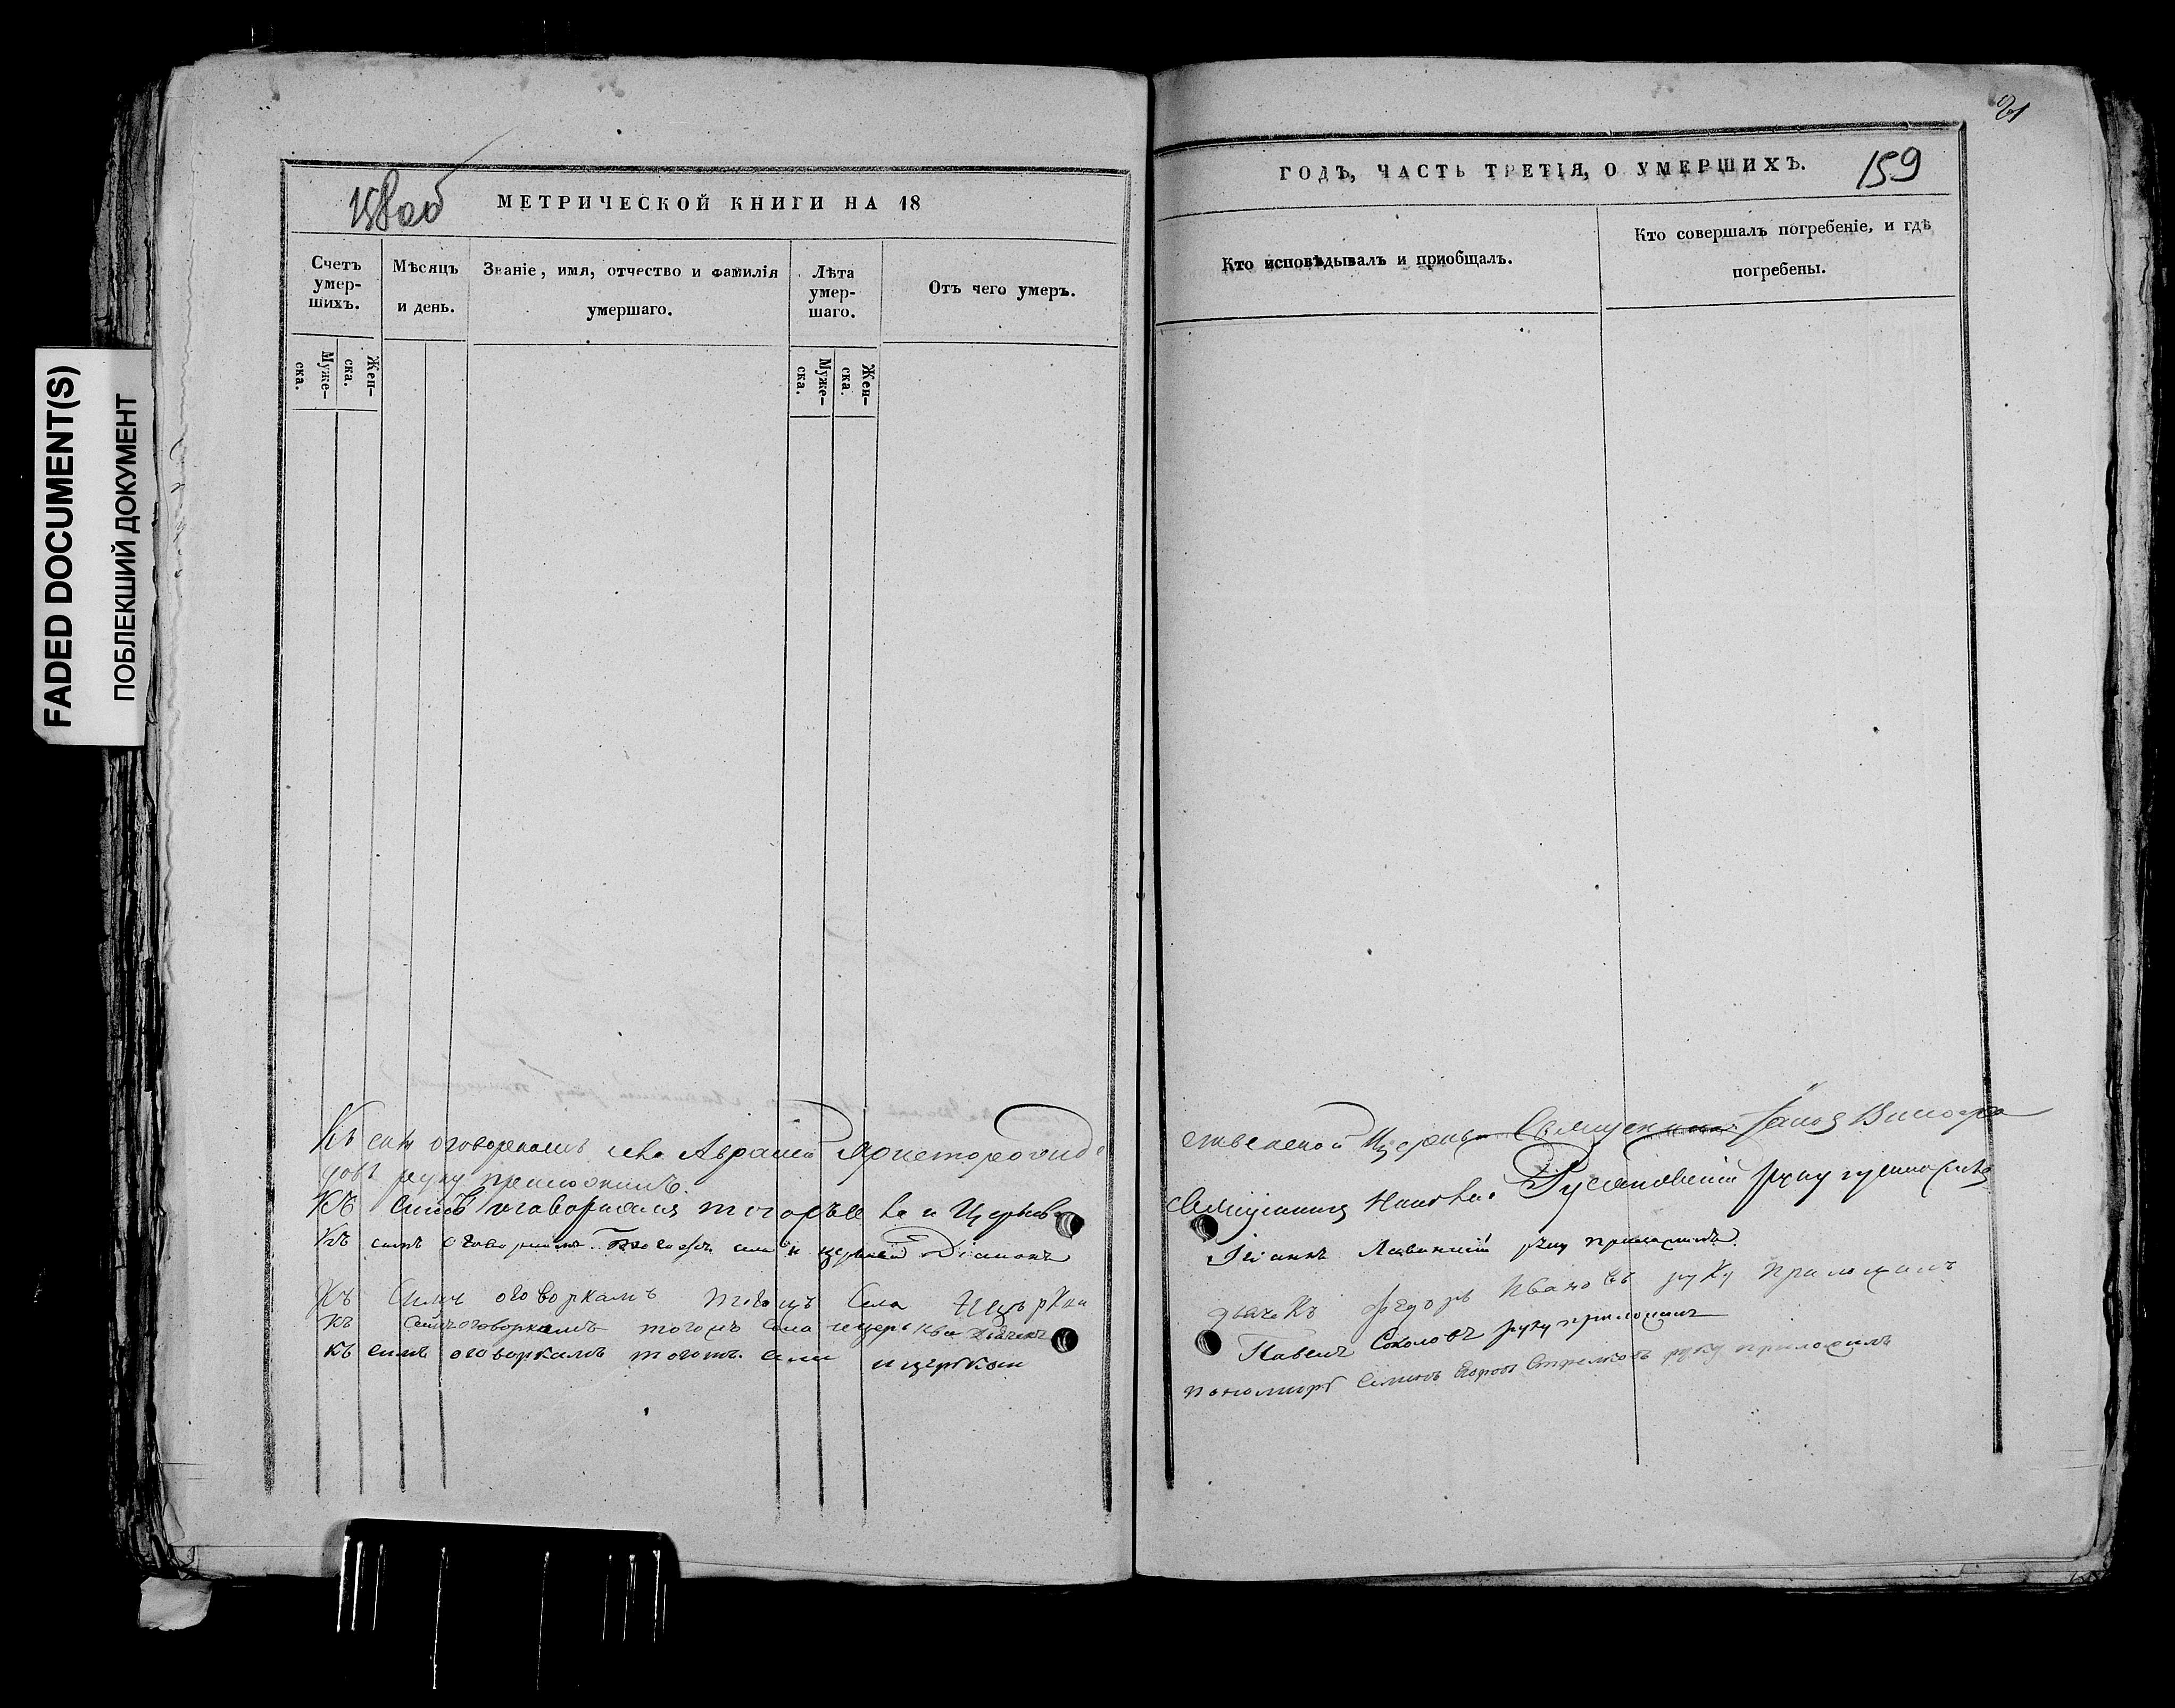 FADED DOCUMENT(S)
ПОБЛЕКШИЙ ДОКУМЕНТ
158об
МЕТРИЧЕСКОЙ КНИГИ НА 18
Счетъ умер-шихъ.
Муже-ска.
Жен-ска.
Мѣсяцъ и день.
Званіе, имя, отчество и фамилія умершаго.
Лѣта умер-шаго.
Муже-ска.
Жен-ска.
Отъ чего умеръ.
Къ симъ оговоркамъ села
руку приложилъ.
Къ симъ оговоркамъ тогожъ села и Церкви
Къ симъ оговоркамъ тогожъ села и церкви Діаконъ
Къ Симъ оговоркамъ тогожъ Села и Церкви
Къ симъ оговоркамъ тогожъ села и церкви Дьячекъ
Къ симъ оговоркамъ тогожъ села и церкви
21
ГОДЪ, ЧАСТЬ ТРЕТІЯ, О УМЕРШИХЪ.
159
Кто исповѣдывалъ и пріобщалъ.
Кто совершалъ погребеніе, и гдѣ погребены.
ственской Церкви Священникъ
Священникъ руку приложилъ
Іоаннъ руку приложилъ.
дьячекъ Федоръ Ивановъ руку приложилъ
Павелъ Соколовъ руку приложилъ
пономарь руку приложилъ